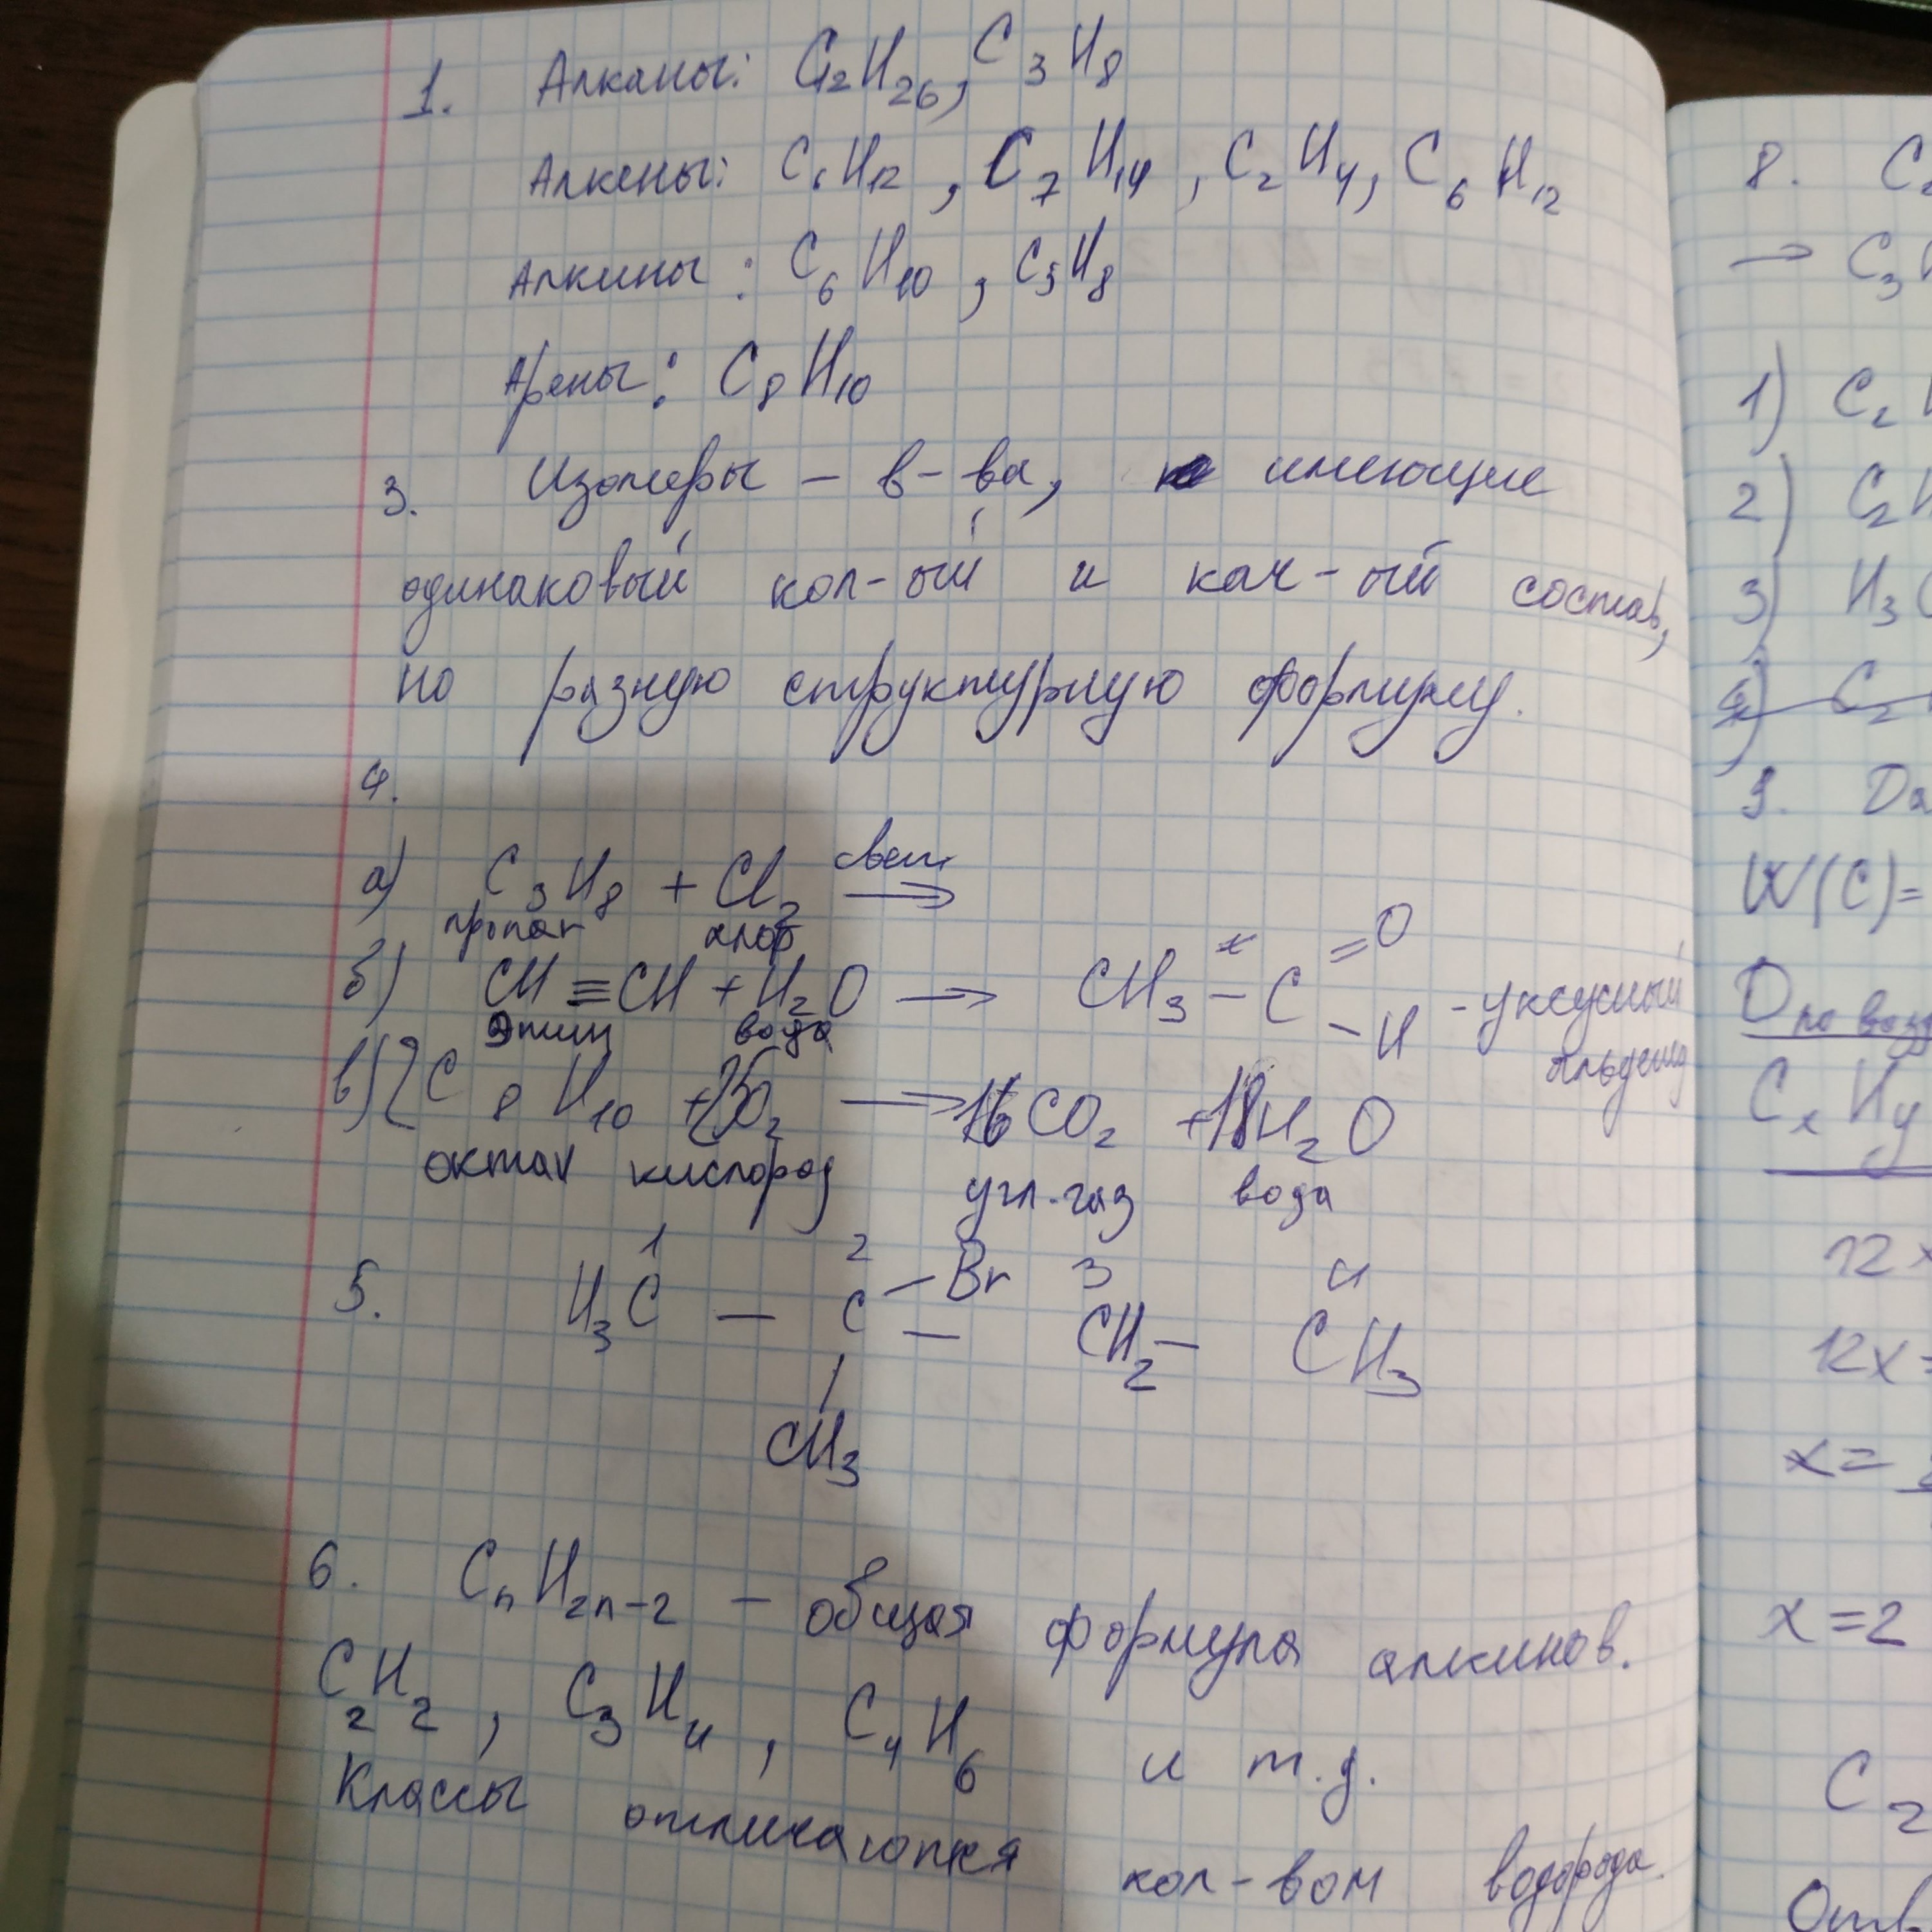 1. Алканы: C12H26, C3H8
Алкены: C6H12, C7H14, C2H4, C6H12
Алкины: C6H10, C5H8
Арены: C8H10
3. Изомеры – в-ва, имеющие
одинаковый кол-ый и кач-ый состав,
но разную структурную формулу.
4.
а) C3H8 + Cl2 свет →
пропан хлор
б) CH≡CH + H2O → CH3 – C =O –H – уксусный
этин вода альдегид
в) 2C8H10 + 25O2 → 16CO2 + 18H2O
октан кислород угл. газ вода
1 2 3 4
5. H3C – C – Br – CH2 – CH3
CH3
6. CnH2n-2 – общая формула алкинов.
C2H2, C3H4, C4H6 и т.д.
Классы отличаются кол-вом водорода.
8. C
→ C3
1) C2
2) C2H
3) H3C
4) C2
9. Да
W(C)=
D по возд
CxHy
12x
12x=
x=
x=2
C2
Отв